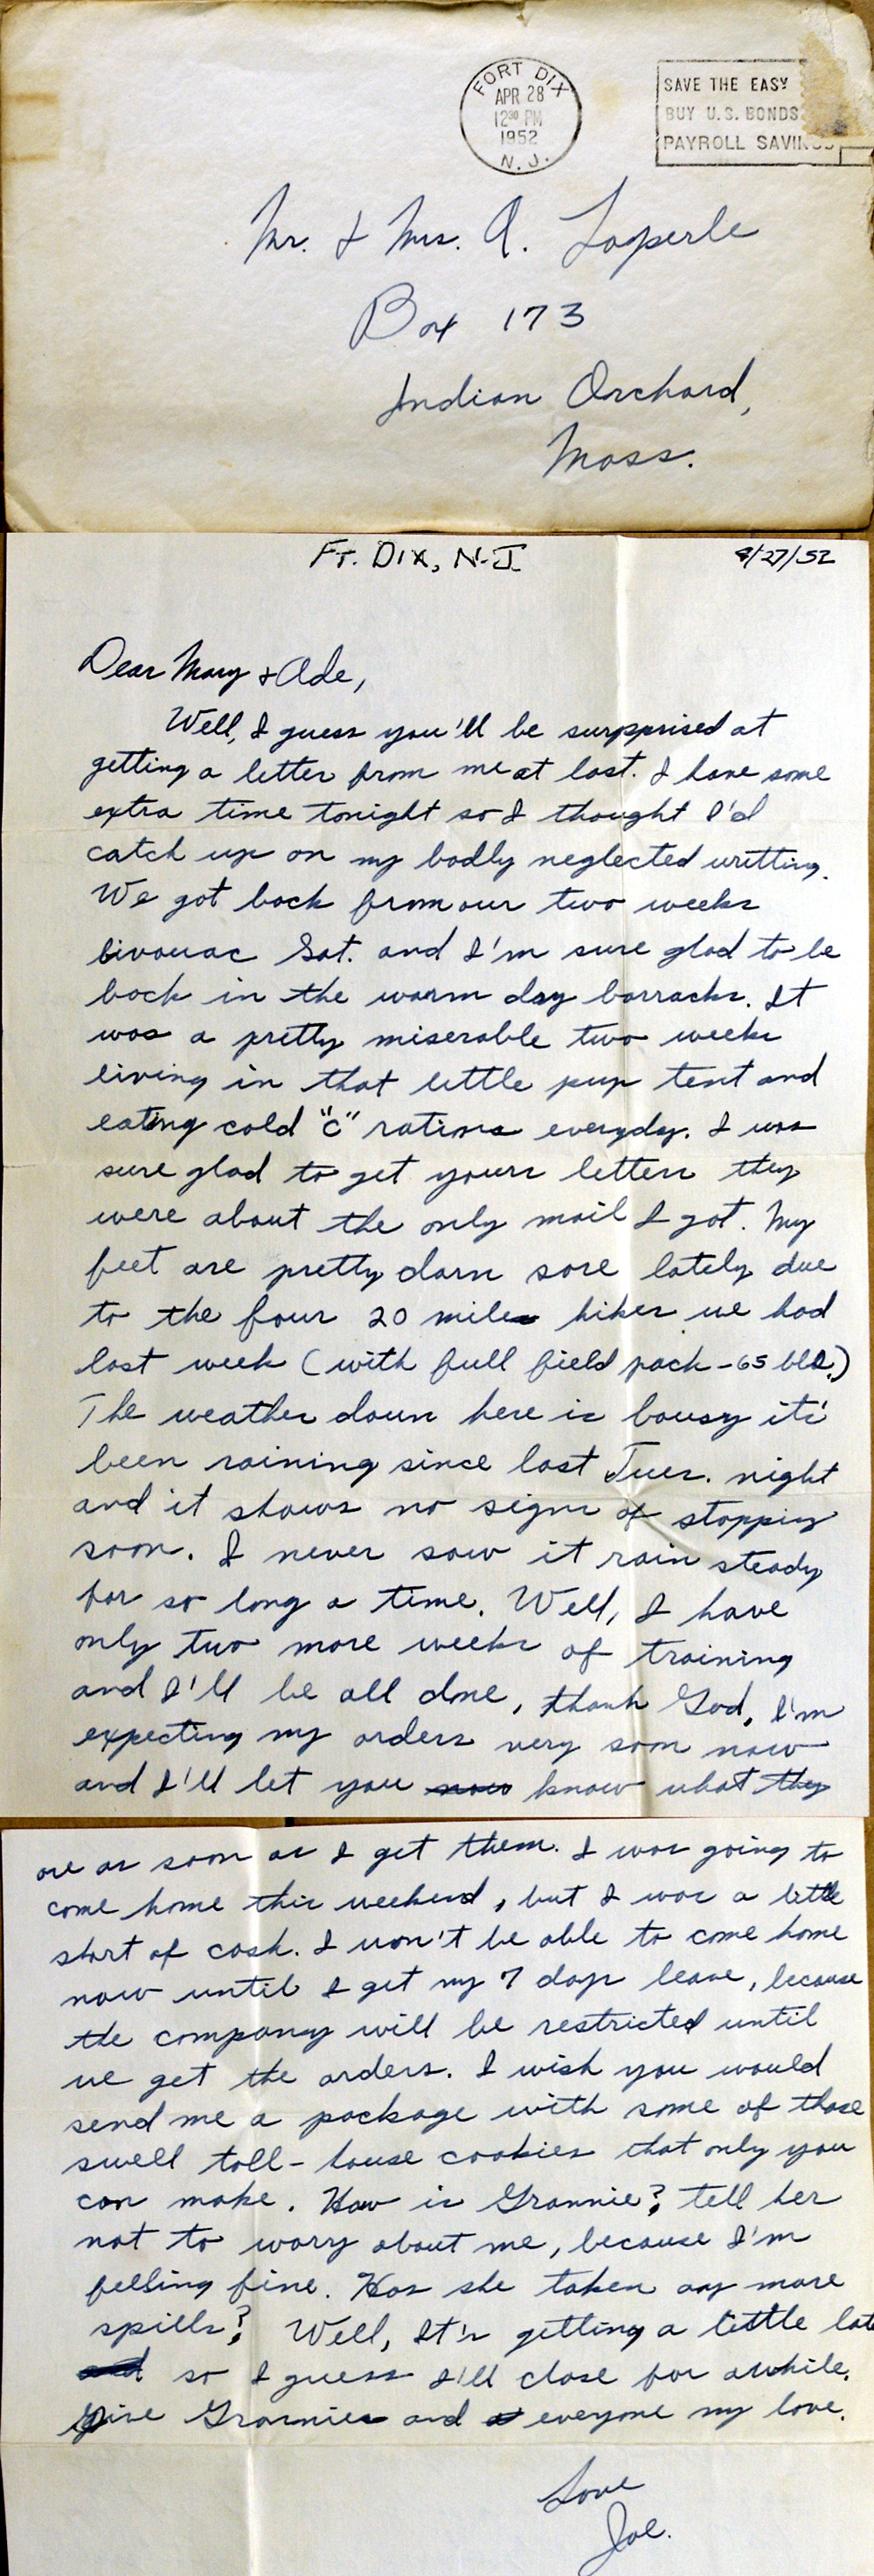 FORT DIX
APR 28
12 30 PM
1952
N. J.
SAVE THE EASY
BUY U.S. BONDS
PAYROLL SAVINGS
Mr. & Mrs. A. Laperle
Box 173
Indian Orchard,
Mass.
Ft. Dix, N.J.
4/27/52
Dear Mary & Ade,
Well, I guess you'll be surpprised at
getting a letter from me at last. I have some
extra time tonight so I thought I'd
catch up on my badly neglected writting.
We got back from our two weeks
bivouac Sat. and I'm sure glad to be
back in the warm day barracks. It
was a pretty miserable two weeks
living in that little pup tent and
eating cold "C" rations everyday. I was
sure glad to get yours letters they
were about the only mail I got. My
feet are pretty darn sore lately due
to the four 20 miles hikes we had
last week (with full field pack - 65 lbs.)
The weather down here is lousy it's
been raining since last Tues. night
and it shows no signs of stopping
soon. I never saw it rain steady
for so long a time. Well, I have
only two more weeks of training
and I'll be all done, thank God, I'm
expecting my orders very soon now
and I'll let you now know what they
are as soon as I get them. I was going to
come home this weekend, but I was a little
short of cash. I won't be able to come home
now until I get my 7 days leave, because
the company will be restricted until
we get the orders. I wish you would
send me a package with some of those
swell toll-house cookies that only you
can make. How is Grannie? tell her
not to worry about me, because I'm
feeling fine. Has she taken any more
spills? Well, It's getting a little late
and so I guess I'll close for awhile.
Give Grannie and everyone my love.
Love
Joe.